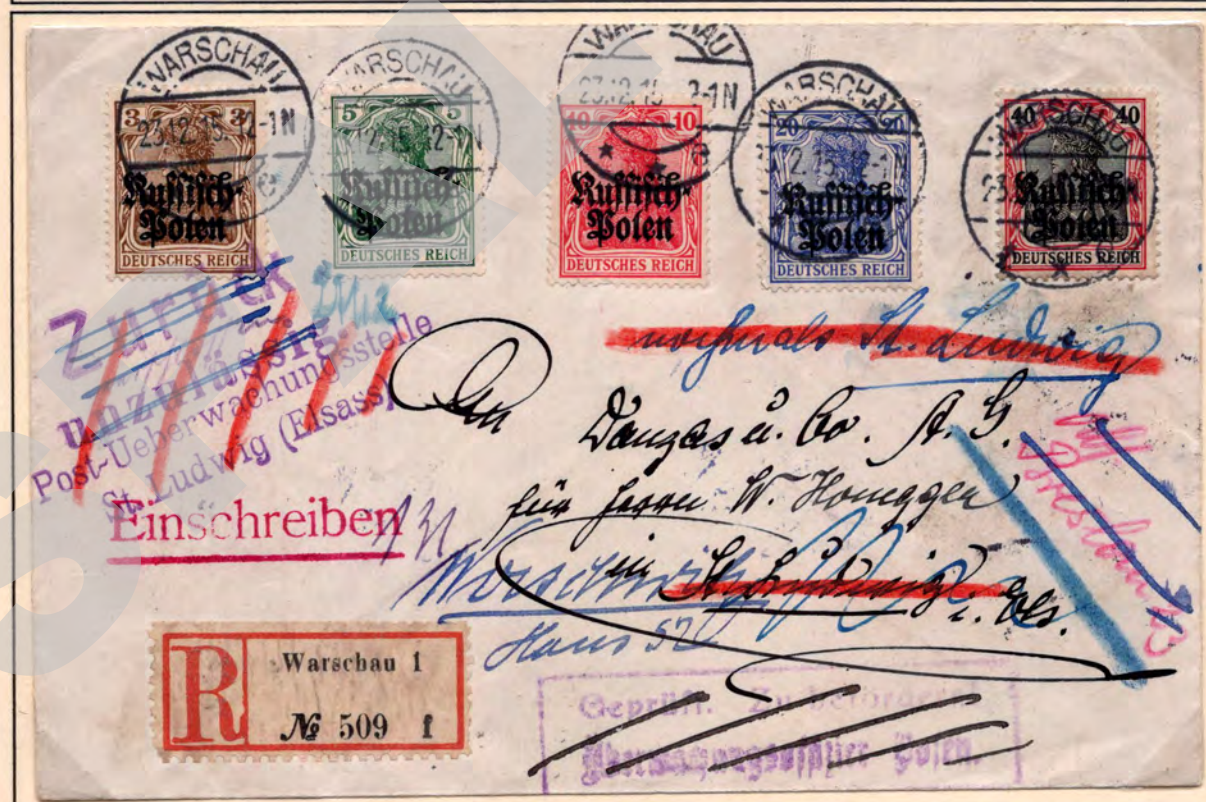 WARSCHAU
23.12.15 12-1N
e
WARSCHAU
12.15.12-1N
WARSCHAU
23.12.15
e
WARSCHAU
12-1N
WARSCHAU
23
3 3
Russisch-
Polen
DEUTSCHES REICH
5 5
Russisch-
Polen
DEUTSCHES REICH
10 10
Russisch-
Polen
DEUTSCHES REICH
20 20
Russisch-
Polen
DEUTSCHES REICH
40 40
Russisch-
Polen
DEUTSCHES REICH
Zurück
unzulässig
Post-Ueberwachungsstelle
St. Ludwig (Elsass)
nochmals St. Ludwig
An
Danzas u. Co. A. G.
für Herrn W. Honegger
in St. Ludwig i. Els.
Einschreiben
Haus 52
Breslau 13
R
Warschau 1
№ 509 f
Geprüft. Zu befördern.
Überwachungsoffizier Posen.